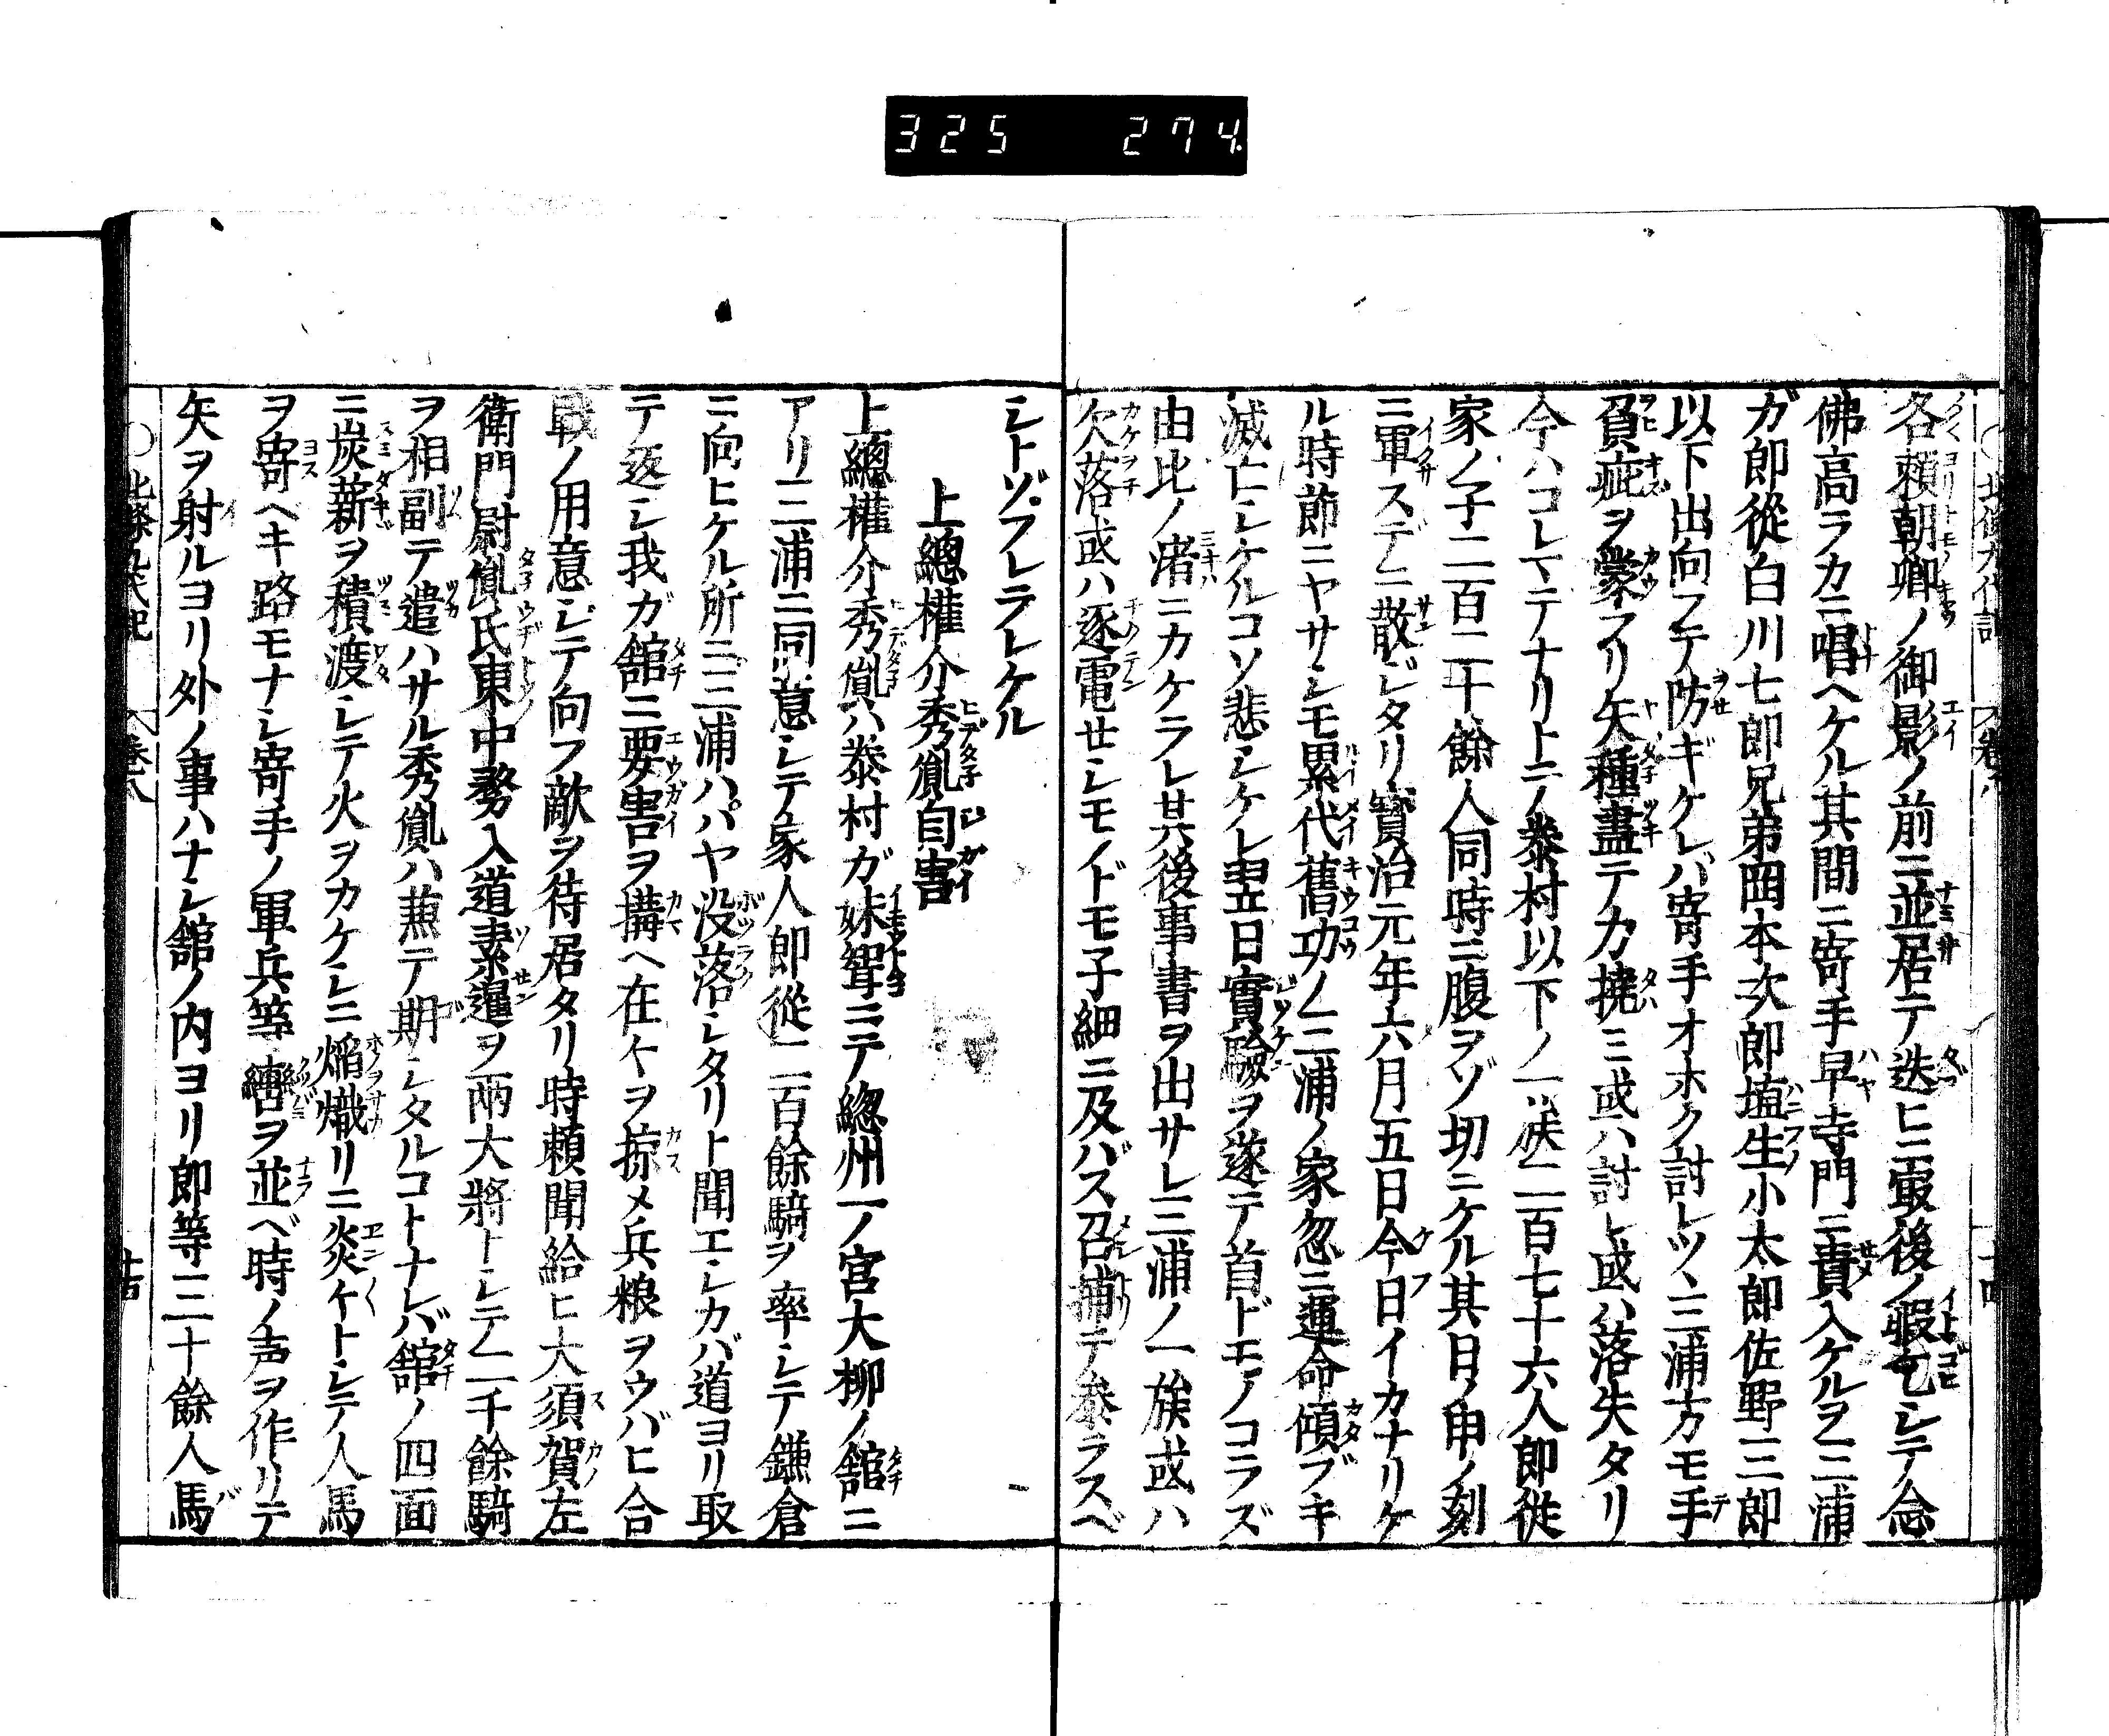 325 274
各頼朝卿ノ御影ノ前ニ並居テ迭ヒニ最後ノ暇乞シテ念
佛高ラカニ唱ヘケル其間ニ寄手早寺門ニ責入ケルヲ三浦
ガ郎從白川七郎兄弟岡本次郎埴生小太郎佐野三郎
以下出向フテ防ギケレバ寄手オホク討レツヽ三浦方モ手
負疵ヲ蒙フリ矢種盡テ力撓ミ或ハ討レ或ハ落失タリ
今ハコレマテナリトテ泰村以下ノ一族二百七十六人郎從
家ノ子二百二十餘人同時ニ腹ヲゾ切ニケル其日ノ申ノ刻
ニ軍スデニ散ジタリ寳治元年六月五日今日イカナリケ
ル時節ニヤサシモ累代舊功ノ三浦ノ家忽ニ運命傾ブキ
滅亡シケルコソ悲シケレ翌日實驗ヲ遂テ首ドモノコラズ
由比ノ渚ニカケラレ其後事書ヲ出サレ三浦ノ一族或ハ
欠落或ハ逐電セシモノドモ子細ニ及バズ召捕テ參ラスベ
シトゾフレラレケル
上總權介秀胤自害
上總權介秀胤ハ泰村ガ妹聟ニテ總州一ノ宮大柳ノ舘ニ
アリ三浦ニ同意シテ家人郎從二百餘騎ヲ率シテ鎌倉
ニ向ヒケル所ニ三浦ハハヤ没落シタリト聞エシカバ道ヨリ取
テ返シ我ガ舘ニ要害ヲ搆ヘ在々ヲ掠メ兵粮ヲウバヒ合
戰ノ用意シテ向フ敵ヲ待居タリ時頼聞給ヒ大須賀左
衛門尉胤氏東中務入道素暹ヲ兩大將トシテ一千餘騎
ヲ相副テ遣ハサル秀胤ハ兼テ期シタルコトナレバ舘ノ四面
ニ炭薪ヲ積渡シテ火ヲカケシニ焔熾リニ炎々トシテ人馬
ヲ寄ヘキ路モナシ寄手ノ軍兵等轡ヲ並ベ時ノ声ヲ作リテ
矢ヲ射ルヨリ外ノ事ハナシ舘ノ内ヨリ郎等三十餘人馬